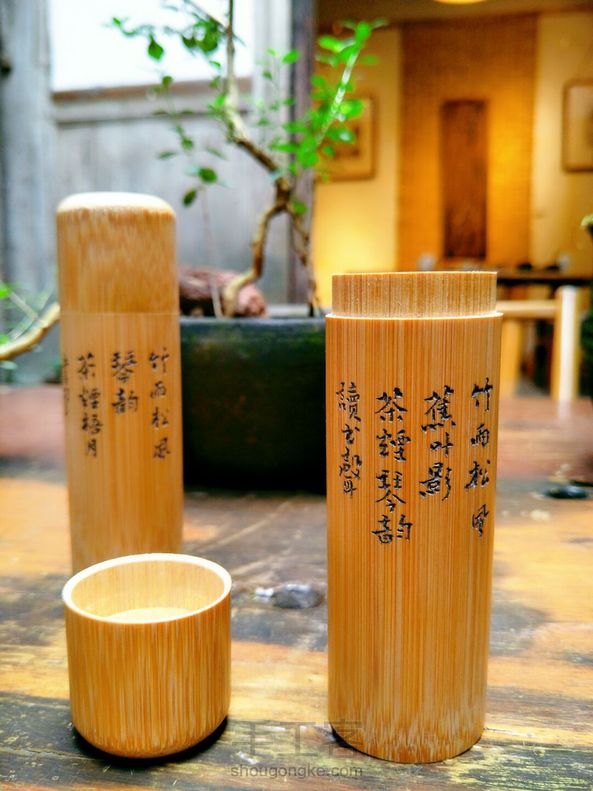 竹雨松風
琴韵
茶煙梧月
竹雨松風
蕉叶影
茶煙琴韵
讀书聲
手工客
shougongke.com